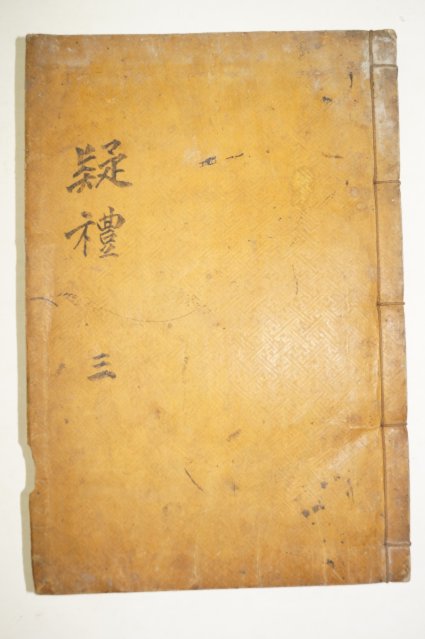 疑禮
三